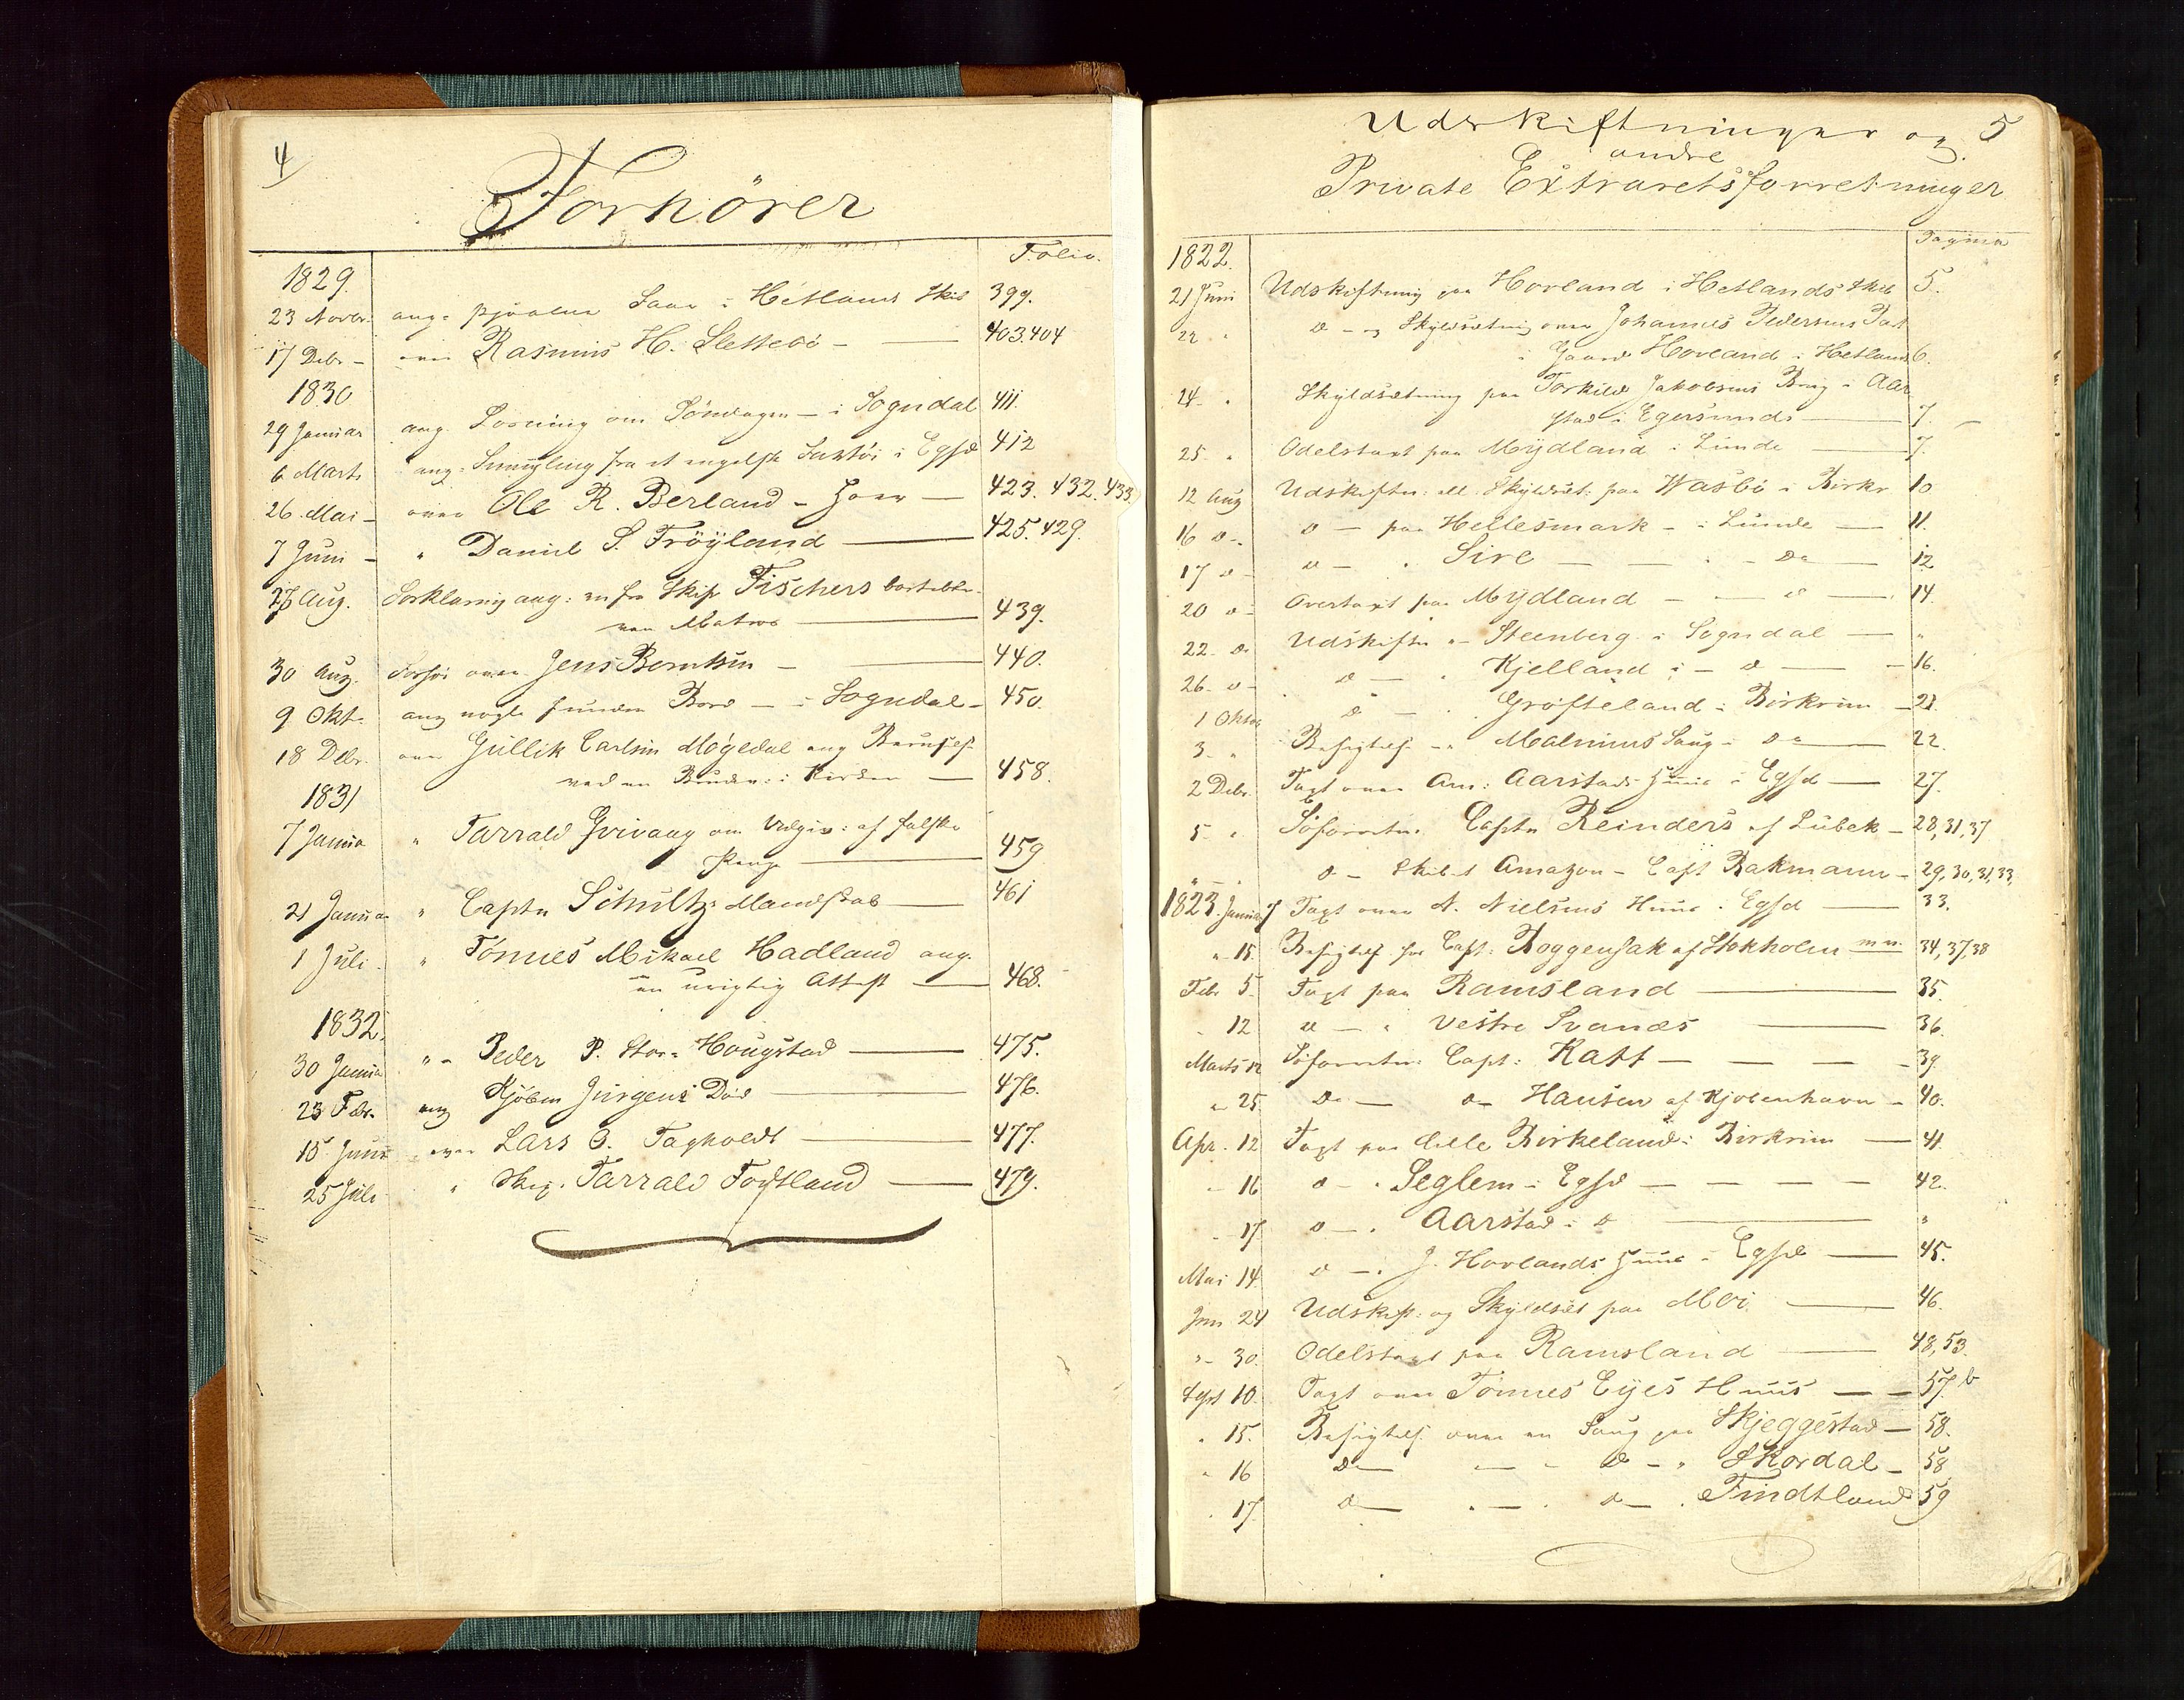 4
Forhörer
Folio.
1829.
23 Novbr. ang. stjaalne Faar i Hetlands Skib 399.
17 Debr — over Rasmus H. Slettebö — 403.404
1830
29 Januar ang. Losning om Söndagen — i Sogndal 411.
6 Marts ang. Smugling fra et engelsk Fartöi i Egsd 412
26 Mai — over Ole R. Berland — Hoer — 423. 432. 433.
7 Juni — " Daniel S. Fröyland — 425. 429.
27 Aug. Forklaring ang: en fra Skipr Fischers
Matros — 439.
30 Aug. Forhör over Jens Berntsen — 440.
9 Okt. ang nogle fundne Bord — i Sogndal — 450.
18 Debr. over Gullik Carlsen Mögedal ang
ved en i Kirken — 458.
1831
7 Janua " Tarrald Grivaag om Udgiv: af falske
Penge — 459
21 Janua " Captn Schultz's Mandskab — 461
1 Juli. " Tönnes Mikael Hadland ang.
en urigtig Attest — 468.
1832.
30 Janua " — Peder P. Stor-Hougstad — 475.
23 Febr. ang Kjöbm Jürgens Död — 476.
15 Juni over Lars O. Tagholdt — 477.
25 Juli " Tarrald Fodtland — 479.
Udskiftninger og 5
andre
Private Extraretsforretninger
Pagina
1822.
21 Juni Udskiftning paa Hovland i Hetlands Skib 5.
22 " D — og Skyldsætning over Johannes Pedersens Part
i Gaard Hovland i Hetland 6.
24 " Skyldsætning paa Torkild Jakobsens Brug i Aar
stad i Egersund — 7.
25 " Odelstaxt paa Mydland i Lunde — 7.
12 Aug Udskiftn: ell. Skyldsæt: paa Wasbö i Birkr 10
16 D — D — paa Hellesmark — i Lunde — 11.
17 D — D — " Sire — — Do — 12
20 D — Overtaxt paa Mydland — — D — 14.
22 D Udskiftn " Steenberg i Sogndal — "
26 D — D — " Kjelland i — D — 16.
1 Oktob D — " Gröfteland i Birkrim — 21.
3 " Besigtels. — " Malmins Saug i Do — 22.
2 Debr. Taxt over Am: Aarstads Huus i Egsd — 27.
5 " Söforretn. Captn Reinders af Lübek — 28, 31, 37
" " D — Skibet Amazon — Capt Bakmann — 29, 30, 31, 33,
1823. Janua 7 Taxt over N. Nielsens Huus i Egsd — 33.
" 15 Besigtels for Capt: Roggensak af Stokholm m. v. 34, 37, 38
Febr 5. Taxt paa Ramsland — 35.
" 12 D — " vestre Svanæs — 36.
Marts 12 Söforretn: Capt: Kaff — — — 39.
" 25 Do — D — Hansen af Kjöbenhavn — 40.
Apr. 12 Taxt paa lille Birkeland i Birkrim — 41.
— 16 D — " Seglem i Egsd — — — 42.
— 17 D — " Aarstad i D — "
Mai 14 D — " J. Hovlands Huus i Egsd — 45.
Juni 24 Udskift: og Skyldsæt paa Moi — 46.
" — 30. Odelstaxt paa Ramsland — 48, 53.
Sept 10. Taxt over Tönnes Eyes Huus — — 57 b
" 15. Besigtels. over en Saug paa Skjeggestad — 58.
" 16 D — — — D — " Skordal — 58
" 17. D — " — " D — " Findtland 59